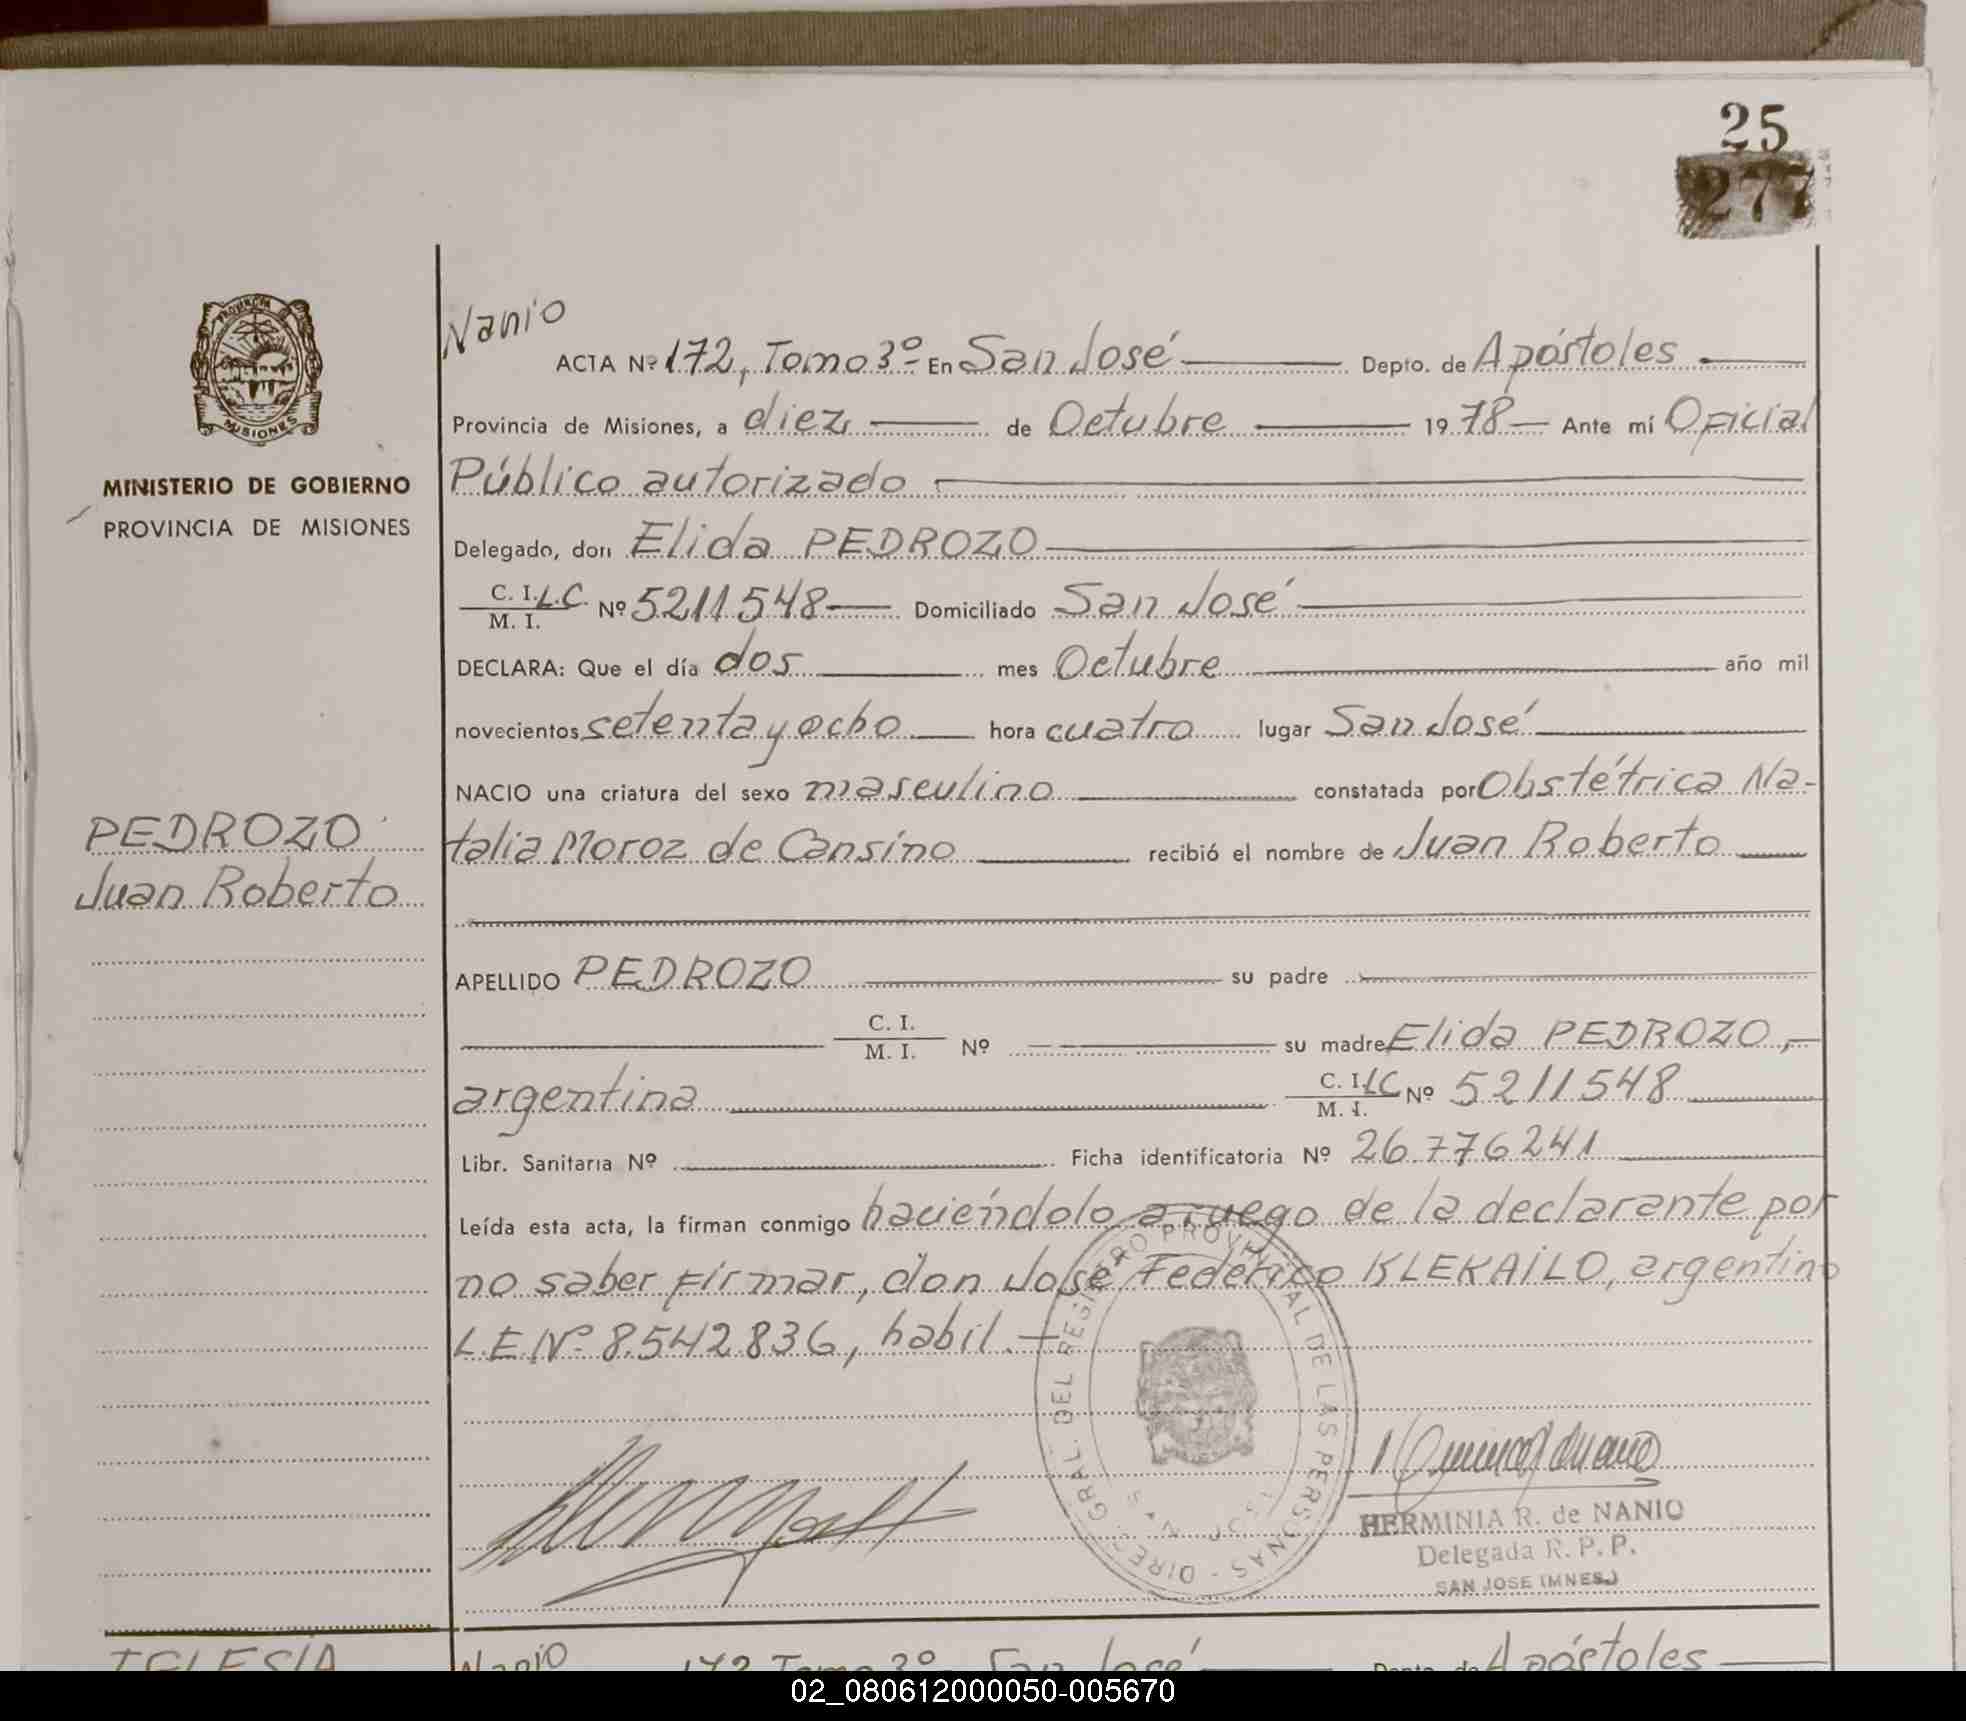 25
277
Nanio
ACTA Nº 172, Tomo 3º- En San José Depto. de Apóstoles
Provincia de Misiones, a diez de Octubre 1978 Ante mí Oficial
Público autorizado
Delegado, don Elida PEDROZO
C. I. L.C. Nº 5211548 Domiciliado San José
M. I.
DECLARA: Que el día dos mes Octubre año mil
novecientos setenta y ocho hora cuatro lugar San José
NACIO una criatura del sexo masculino constatada por Obstétrica Na-
talia Moroz de Cansino recibió el nombre de Juan Roberto
APELLIDO PEDROZO su padre
C. I.
M. I. Nº su madre Elida PEDROZO,-
argentina C. I. LC Nº 5211548
M. I.
Libr. Sanitaria Nº Ficha identificatoria Nº 26.776241
Leída esta acta, la firman conmigo haciéndolo a ruego de la declarante por
no saber firmar, don José Federico KLEKAILO, argentino
L.E.Nº 8.542836, habil.-
PROVINCIA
MISIONES
MINISTERIO DE GOBIERNO
PROVINCIA DE MISIONES
PEDROZO
Juan Roberto
DIREC. GRAL. DEL REGISTRO PROVINCIAL DE LAS PERSONAS -
SAN JOSE
HERMINIA R. de NANIO
Delegada R. P. P.
SAN JOSE (MNES.)
IGLESIA
Nanio
172 Tomo 3º San José Depto. de Apóstoles
02_080612000050-005670